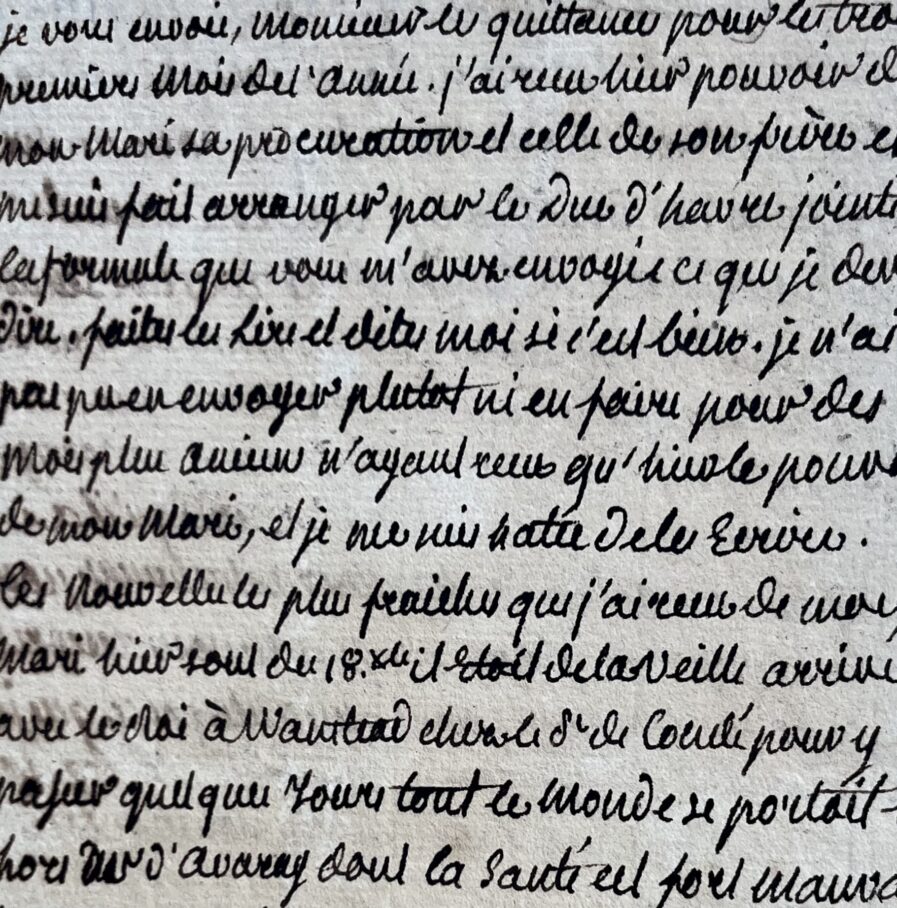 je vous envoie, monsieur les quittances pour les tro
premiers mois de l'année. j'ai recu hier pouvoir d
mon Mari sa procuration et celle de son frère et
me suis fait arranger par le Duc d'havre joint
la formule que vous m'avez envoyée ce que je dev
dire. faites les lire et dites moi si c'est bien. je n'ai
pas pu en envoyer plutot ni en faire pour des
mois plus anciens n'ayant recus qu'hier le pouv
de mon Mari, et je me suis hatée de les Ecrire.
les Nouvelles les plus fraiches que j'ai recus de mon
Mari hier sont du 18. xbre il etoit de la Veille arrivé
avec le Roi à Wanstead chez le de Condé pour y
passer quelques Jours tout le Monde se portoit
hors d'Avaray dont la Santé est fort mauva